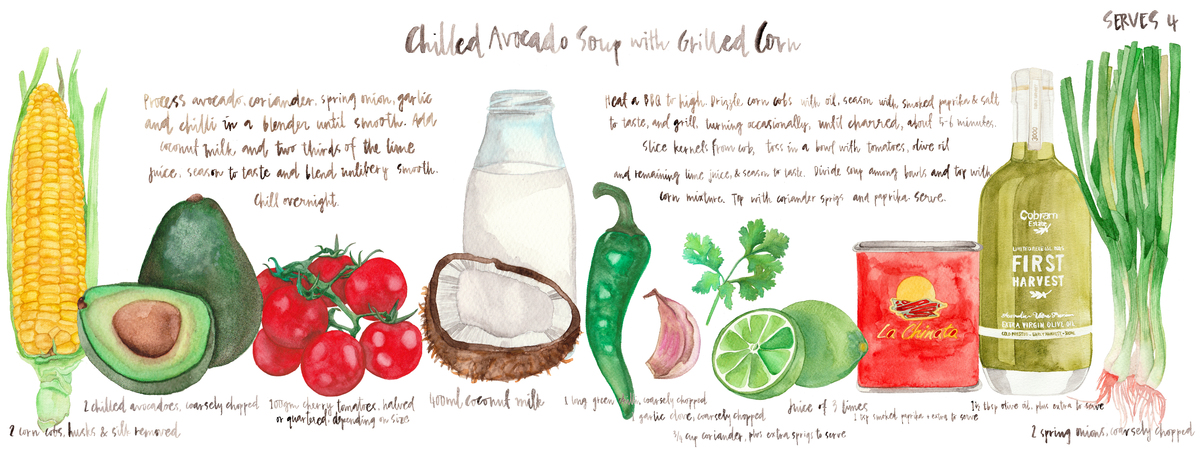 SERVES 4
Chilled Avocado Soup with Grilled Corn
Process avocado, coriander, spring onion, garlic
and chilli in a blender until smooth. Add
coconut milk and two thirds of the lime
juice, season to taste and blend until very smooth.
Chill overnight.
Heat a BBQ to high. Drizzle corn cobs with oil, season with smoked paprika & salt
to taste, and grill, turning occasionally, until charred, about 5-6 minutes.
Slice kernels from cob, toss in a bowl with tomatoes, olive oil
and remaining lime juice, & season to taste. Divide soup among bowls and top with
corn mixture. Top with coriander sprigs and paprika. Serve.
Cobram
Estate
FIRST
HARVEST
EXTRA VIRGIN OLIVE OIL
La Chinata
2 chilled avocadoes, coarsely chopped
2 corn cobs, husks & silk removed
200gm cherry tomatoes, halved
or quartered, depending on size
400ml coconut milk
1 long green chilli, coarsely chopped
1 garlic clove, coarsely chopped
3/4 cup coriander, plus extra sprigs to serve
Juice of 3 limes
1 tsp smoked paprika + extra to serve
1½ tbsp olive oil, plus extra to serve
2 spring onions, coarsely chopped